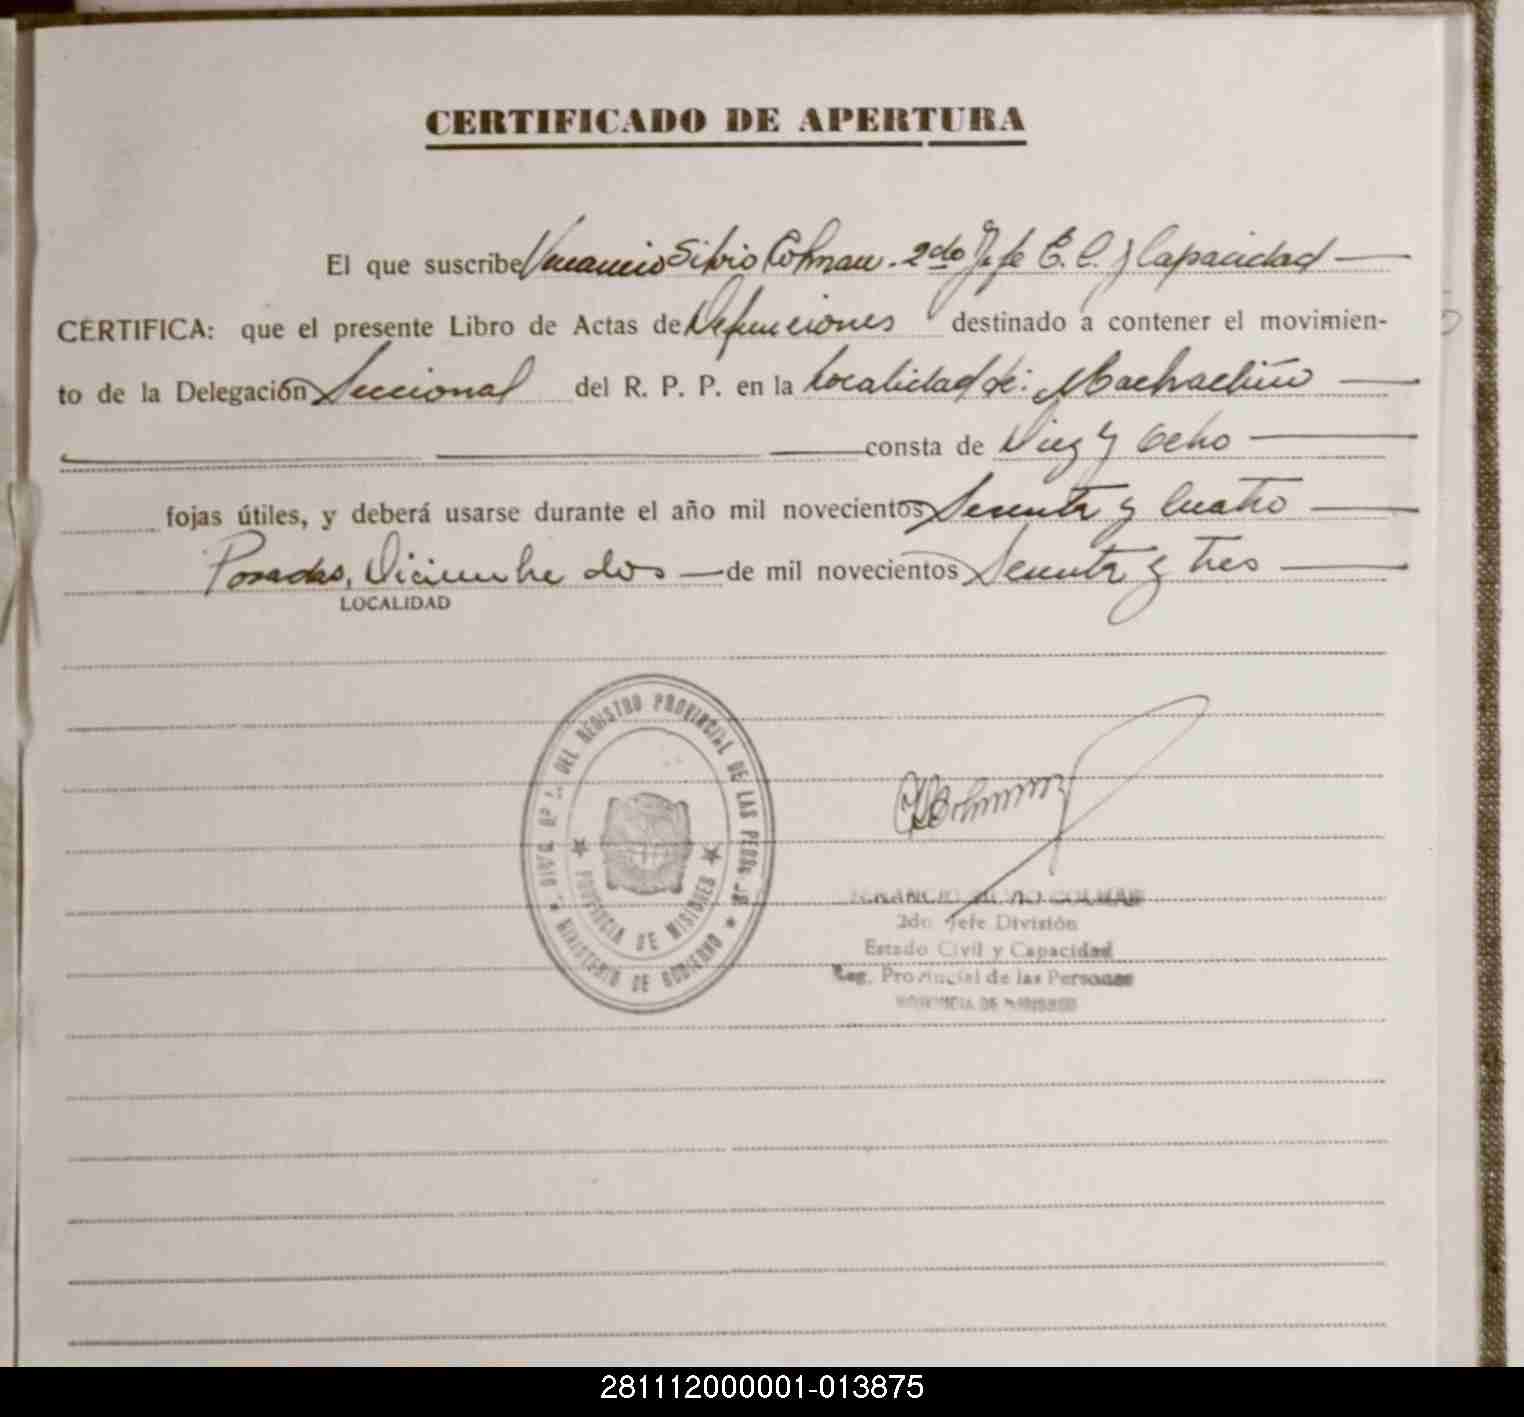 CERTIFICADO DE APERTURA
El que suscribe Venancio Silvio Colman. 2do Jefe E. C. y Capacidad
CERTIFICA: que el presente Libro de Actas de Defunciones destinado a contener el movimien-
to de la Delegación Seccional del R. P. P. en la localidad de:
consta de Diez y Ocho
fojas útiles, y deberá usarse durante el año mil novecientos Setenta y Cuatro
Posadas, Diciembre dos de mil novecientos Setenta y Tres
LOCALIDAD
DEL REGISTRO PROVINCIAL DE LAS PERS
PROVINCIA DE MISIONES
MINISTERIO DE GOBIERNO
VENANCIO SILVIO COLMAN
2do Jefe División
Estado Civil y Capacidad
Reg. Provincial de las Personas
PROVINCIA DE MISIONES
281112000001-013875